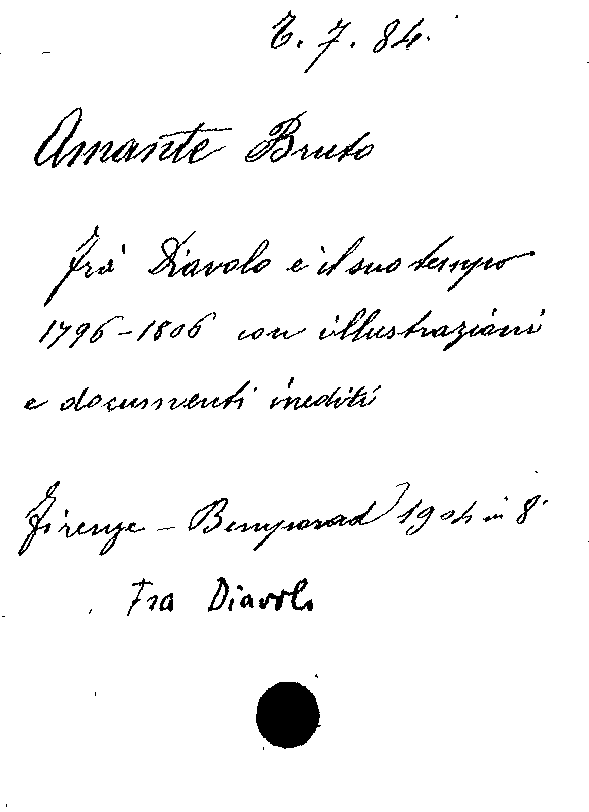 7. 84.
Amante Bruto
Frà Diavolo e il suo tempo
1796-1806 con illustrazioni
e documenti inediti
Firenze - Bemporad 1904 in 8°
Fra Diavolo